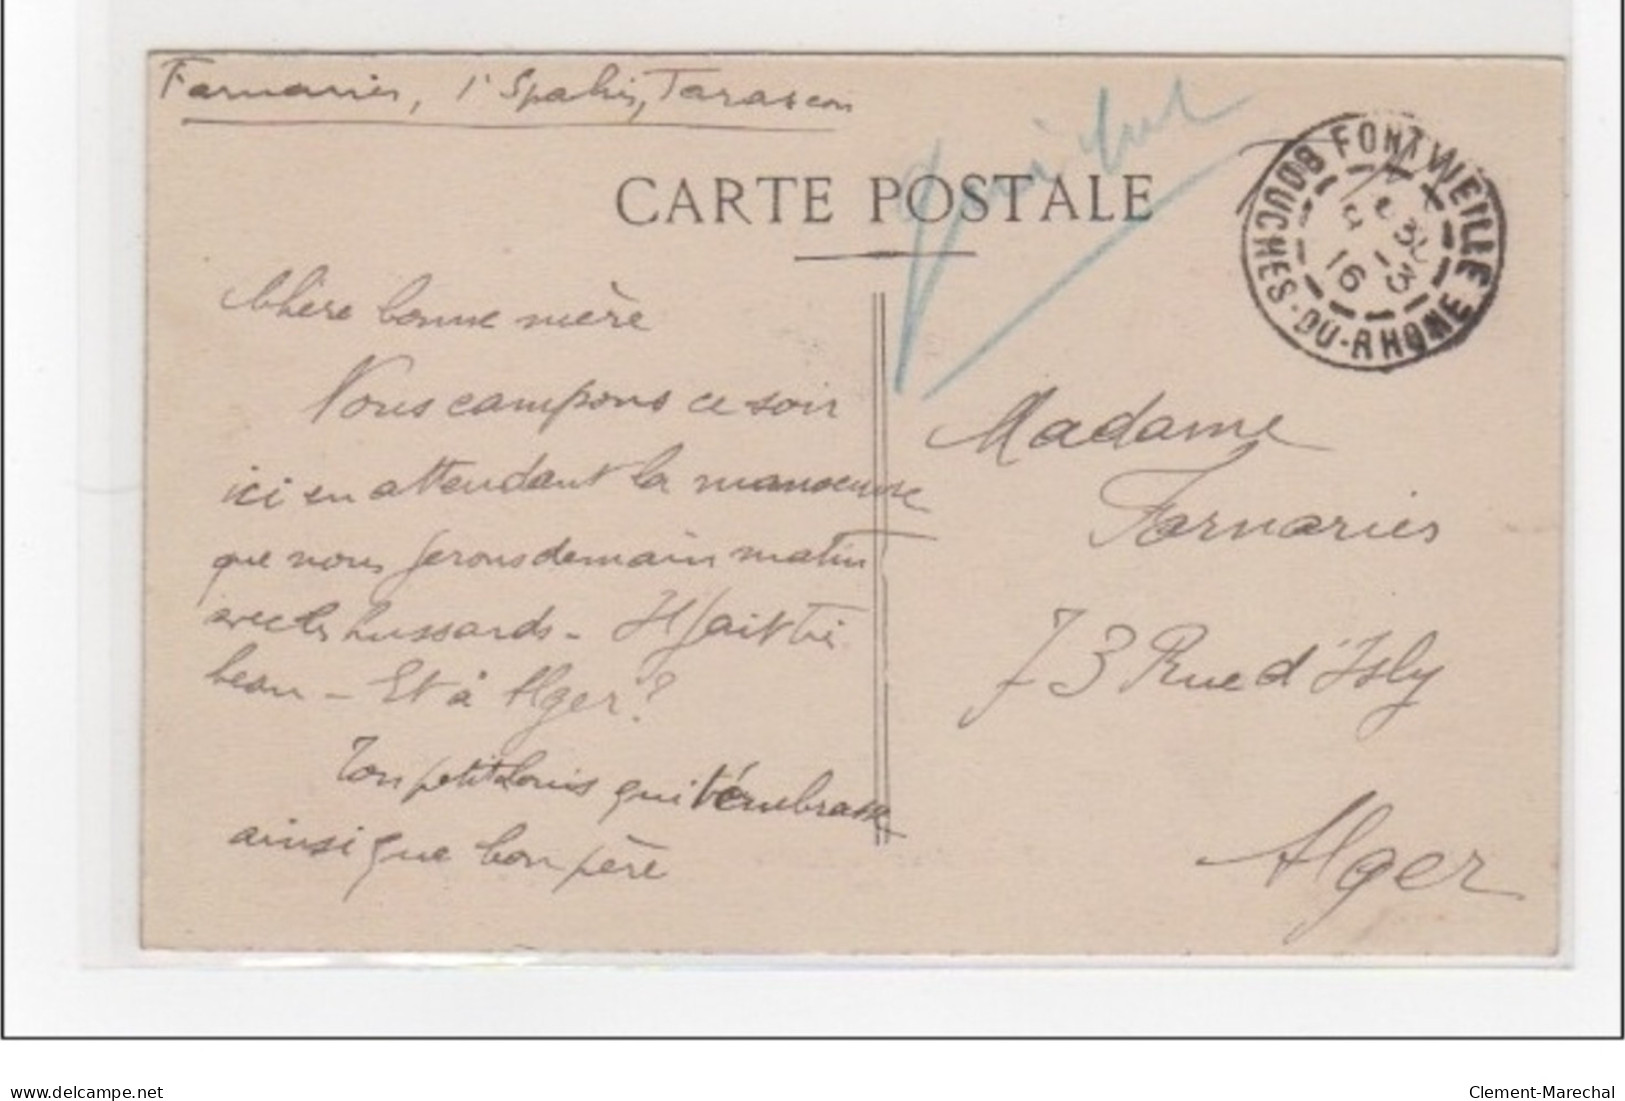 Farnariès, 1r Spahis, Tarascon
CARTE POSTALE
FONTVIEILLE
BOUCHES-DU-RHONE
31 -3
16
Chère bonne mère
Nous campons ce soir
ici en attendant la manoeuvre
que nous ferons demain matin
avec les hussards - Il fait très
beau - Et à Alger?
Ton petit Louis qui t'embrasse
ainsi que bon père
Madame
Farnariès
73 Rue d'Isly
Alger
delcampe.net
Clement-Marechal